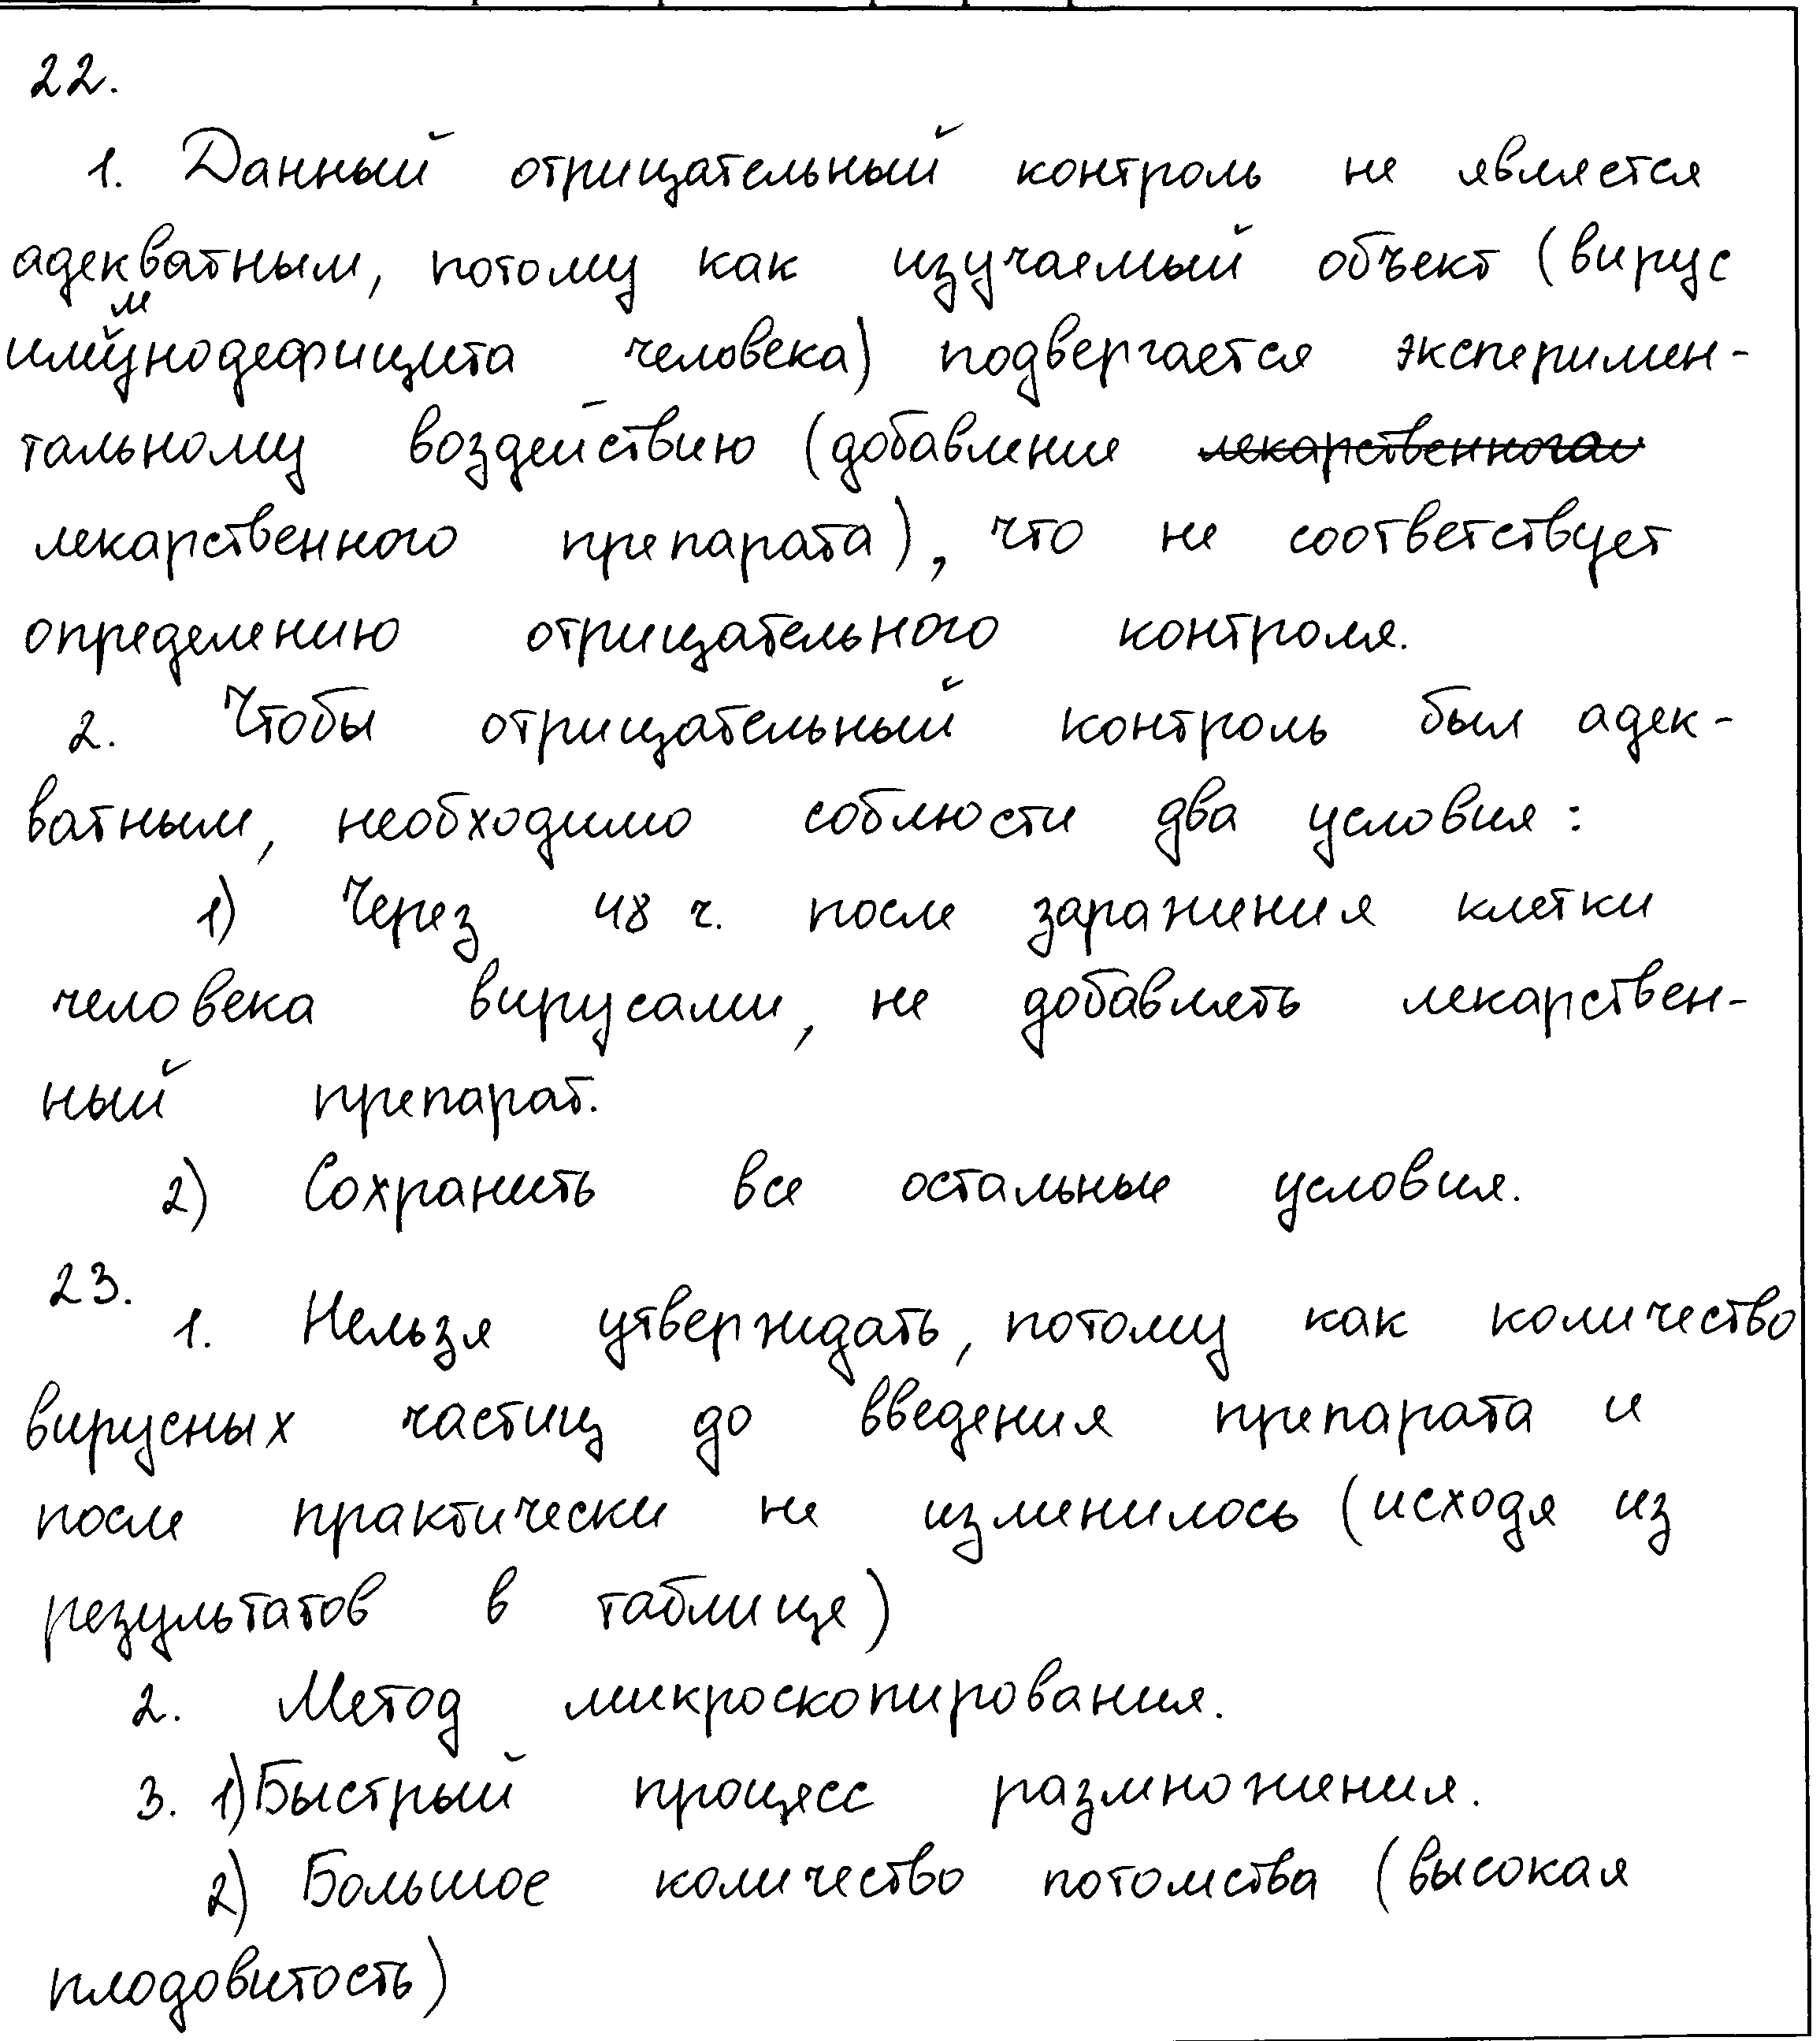 22.
1. Данный отрицательный контроль не является
адекватным, потому как изучаемый объект (вирус
иммунодефицита человека) подвергается эксперимен-
тальному воздействию (добавление лекарственного
лекарственного препарата), что не соответствует
определению отрицательного контроля.
2. Чтобы отрицательный контроль был адек-
ватным, необходимо соблюсти два условия:
1) Через 48 ч. после заражения клетки
человека вирусами, не добавлять лекарствен-
ный препарат.
2) Сохранить все остальные условия.
23.
1. Нельзя утверждать, потому как количество
вирусных частиц до введения препарата и
после практически не изменилось (исходя из
результатов в таблице)
2. Метод микроскопирования.
3. 1) Быстрый процесс размножения.
2) Большое количество потомства (высокая
плодовитость)